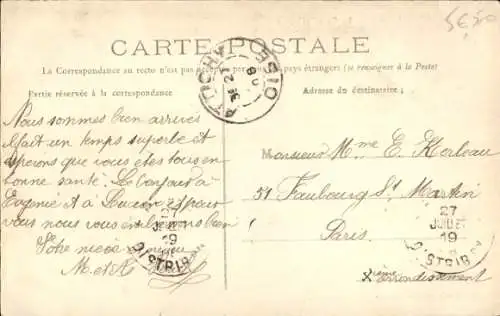 5€50
CARTE POSTALE
La Correspondance au recto n'est pas acceptée par tous les pays étrangers (se renseigner à la Poste)
Partie réservée à la correspondance
Adresse du destinataire
OISE
Nous sommes bien arrivés
il fait un temps superbe et
espérons que vous êtes tous en
bonne santé. Le bonjour à
Eugenie et à Lucien et pour
vous nous vous embrassons bien
Votre nièce
M. et A
Monsieur Mme E. Korleau
51 Faubourg St Martin
Paris.
Xième Arrondissement
27
JUIL
19
DISTRIB
27
JUIL
19
DISTRIB